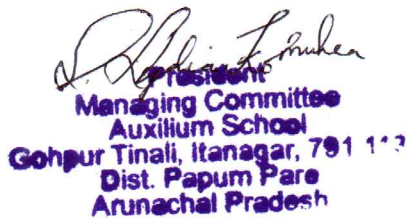 President
Managing Committee
Auxilium School
Gohpur Tinali, Itanagar, 791 113
Dist. Papum Pare
Arunachal Pradesh